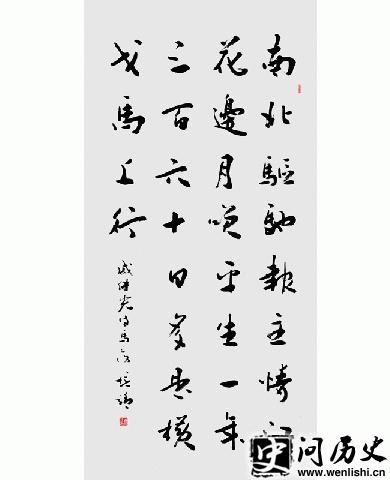 南北驅馳報主情江
花邊月咲平生一年
三百六十日多是横
戈馬上行
戚继光
史 问历史
www.wenlishi.cn